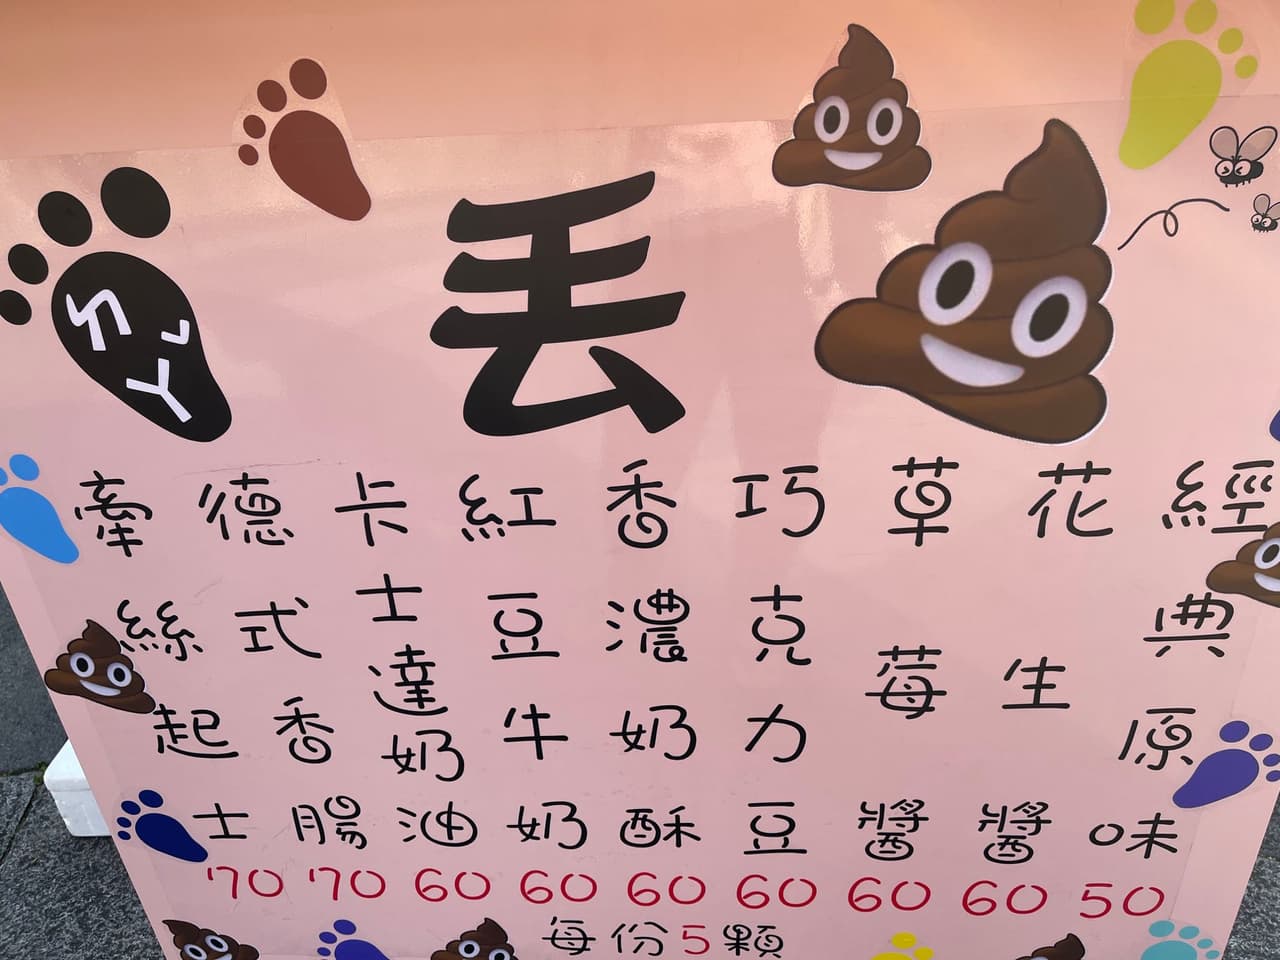 ㄌㄚˋ丟
經典原味
花生醬
草莓醬
巧克力豆
香濃奶酥
紅豆牛奶
卡士達奶油
德式香腸
牽絲起士
70 70 60 60 60 60 60 60 50
每份5顆